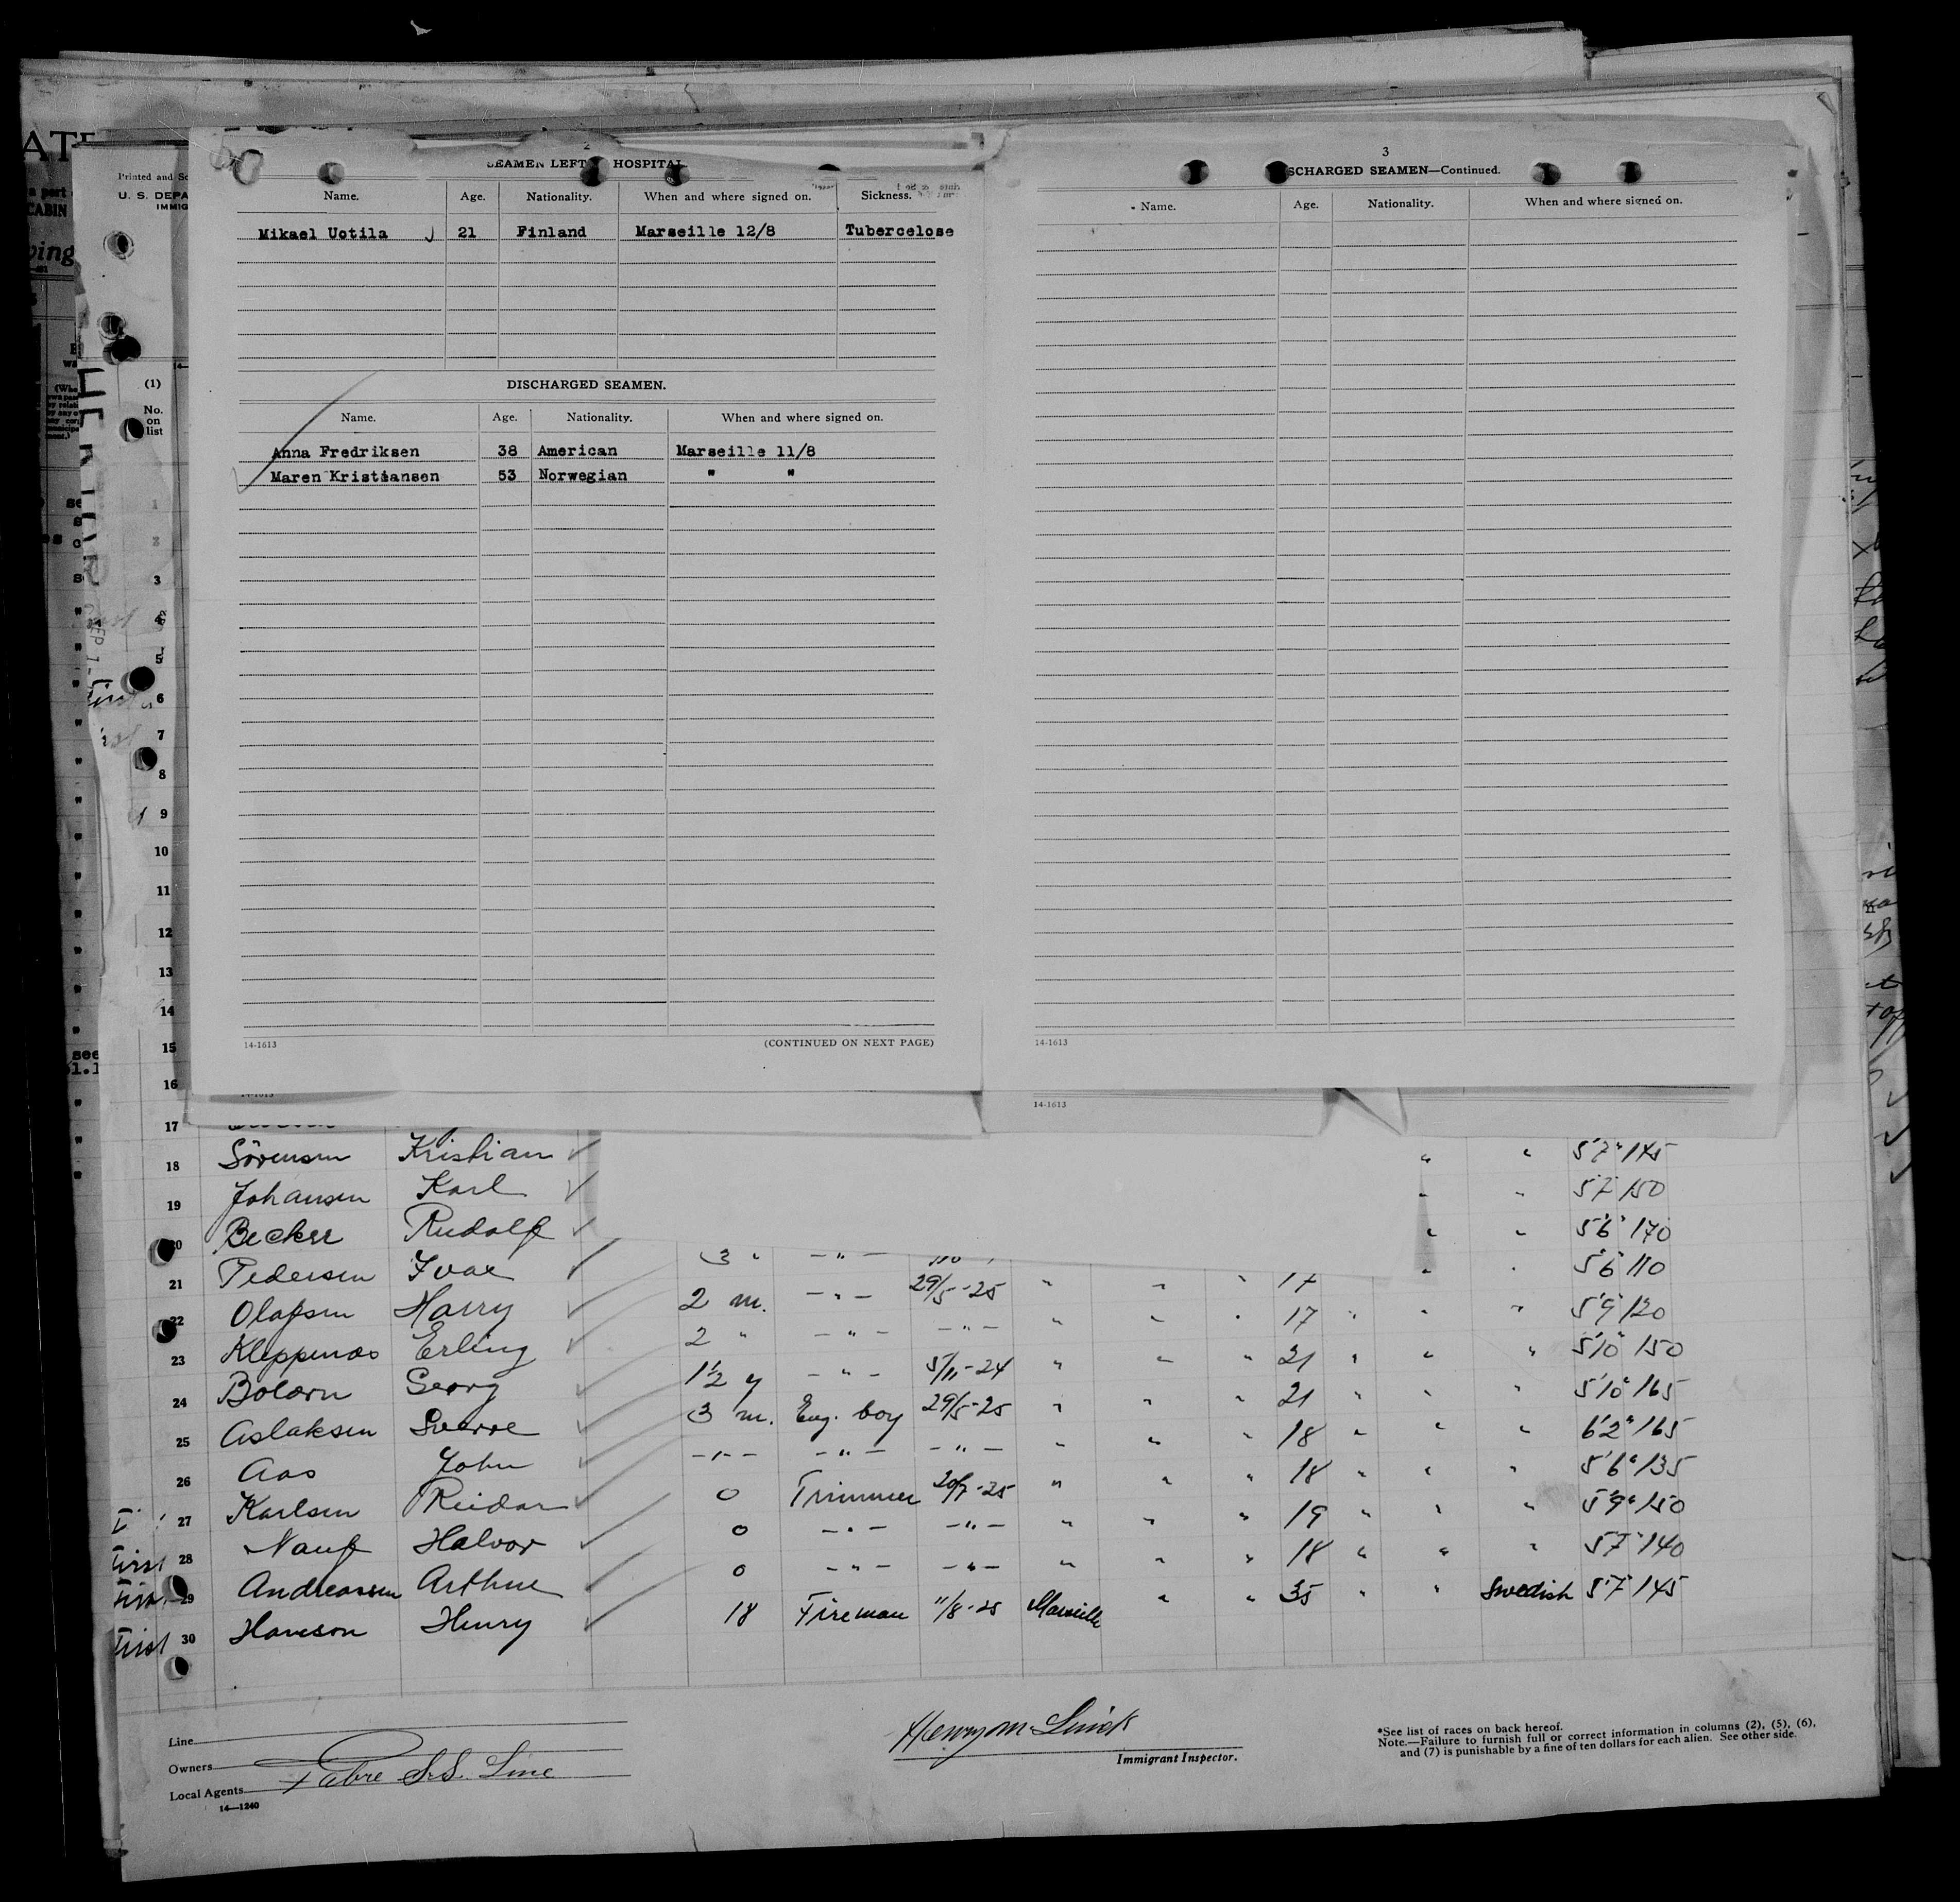 2
SEAMEN LEFT HOSPITAL
Name. Age. Nationality. When and where signed on. Sickness.
Mikael Uotila 21 Finland Marseille 12/8 Tubercelose
DISCHARGED SEAMEN.
Name. Age. Nationality. When and where signed on.
Anna Fredriksen 38 American Marseille 11/8
Maren Kristiansen 53 Norwegian " "
14-1613 (CONTINUED ON NEXT PAGE)
3
SCHARGED SEAMEN—Continued.
Name. Age. Nationality. When and where signed on.
14-1613
14-1613
Printed and
U. S. DEPA
IMMIG
(1)
No.
on
list
3
4
5
6
7
8
9
10
11
12
13
14
15
16
17
18 Sörensen Kristian " " 5'7" 145
19 Johansen Karl " " 5'7 150
20 Becker Rudolf " " 5'6" 170
21 Pedersen Ivar 3 " — " — " " " 17 " " 5'6" 110
22 Olafsen Harry 2 m. — " — 29/5-25 " " " 17 " " " 5'9" 120
23 Kleppenæs Erling 2 " — " — — " — " " " 21 " " " 5'10" 150
24 Georg 1½ y — " — 5/11-24 " " " 21 " " " 5'10" 165
25 Aslaksen Sverre 3 m. Eng. boy 29/5-25 " " " 18 " " " 6'2" 165
26 Aas John — " — — " — — " — " " " 18 " " " 5'6" 135
27 Karlsen Reidar 0 Trimmer 20/7-25 " " " 19 " " " 5'9" 150
First 28 Nauf Halvor 0 — " — — " — " " " 18 " " " 5'7" 140
First 29 Andreassen Arthur 0 — " — — " — " " " 35 " " Swedish 5'7" 145
First 30 Henry 18 Fireman 11/8-25 Marseille
Line
Owners
Local Agents Fabre S.S. Line
14—1240
Immigrant Inspector.
*See list of races on back hereof.
Note.—Failure to furnish full or correct information in columns (2), (5), (6),
and (7) is punishable by a fine of ten dollars for each alien. See other side.